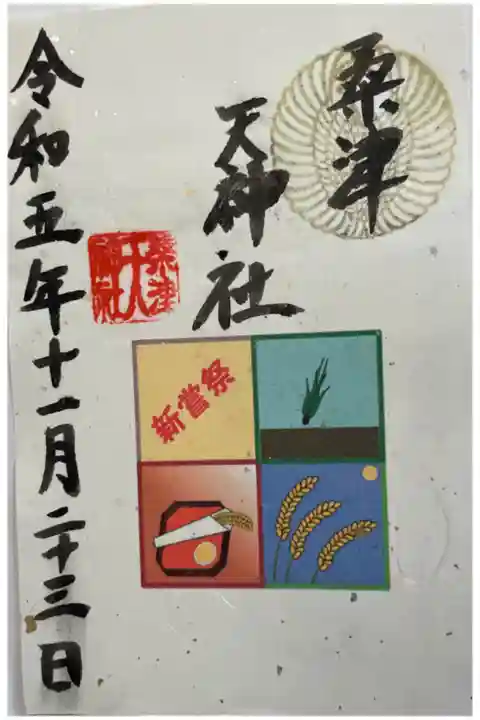 桑津
天神社
新嘗祭
令和五年十一月二十三日